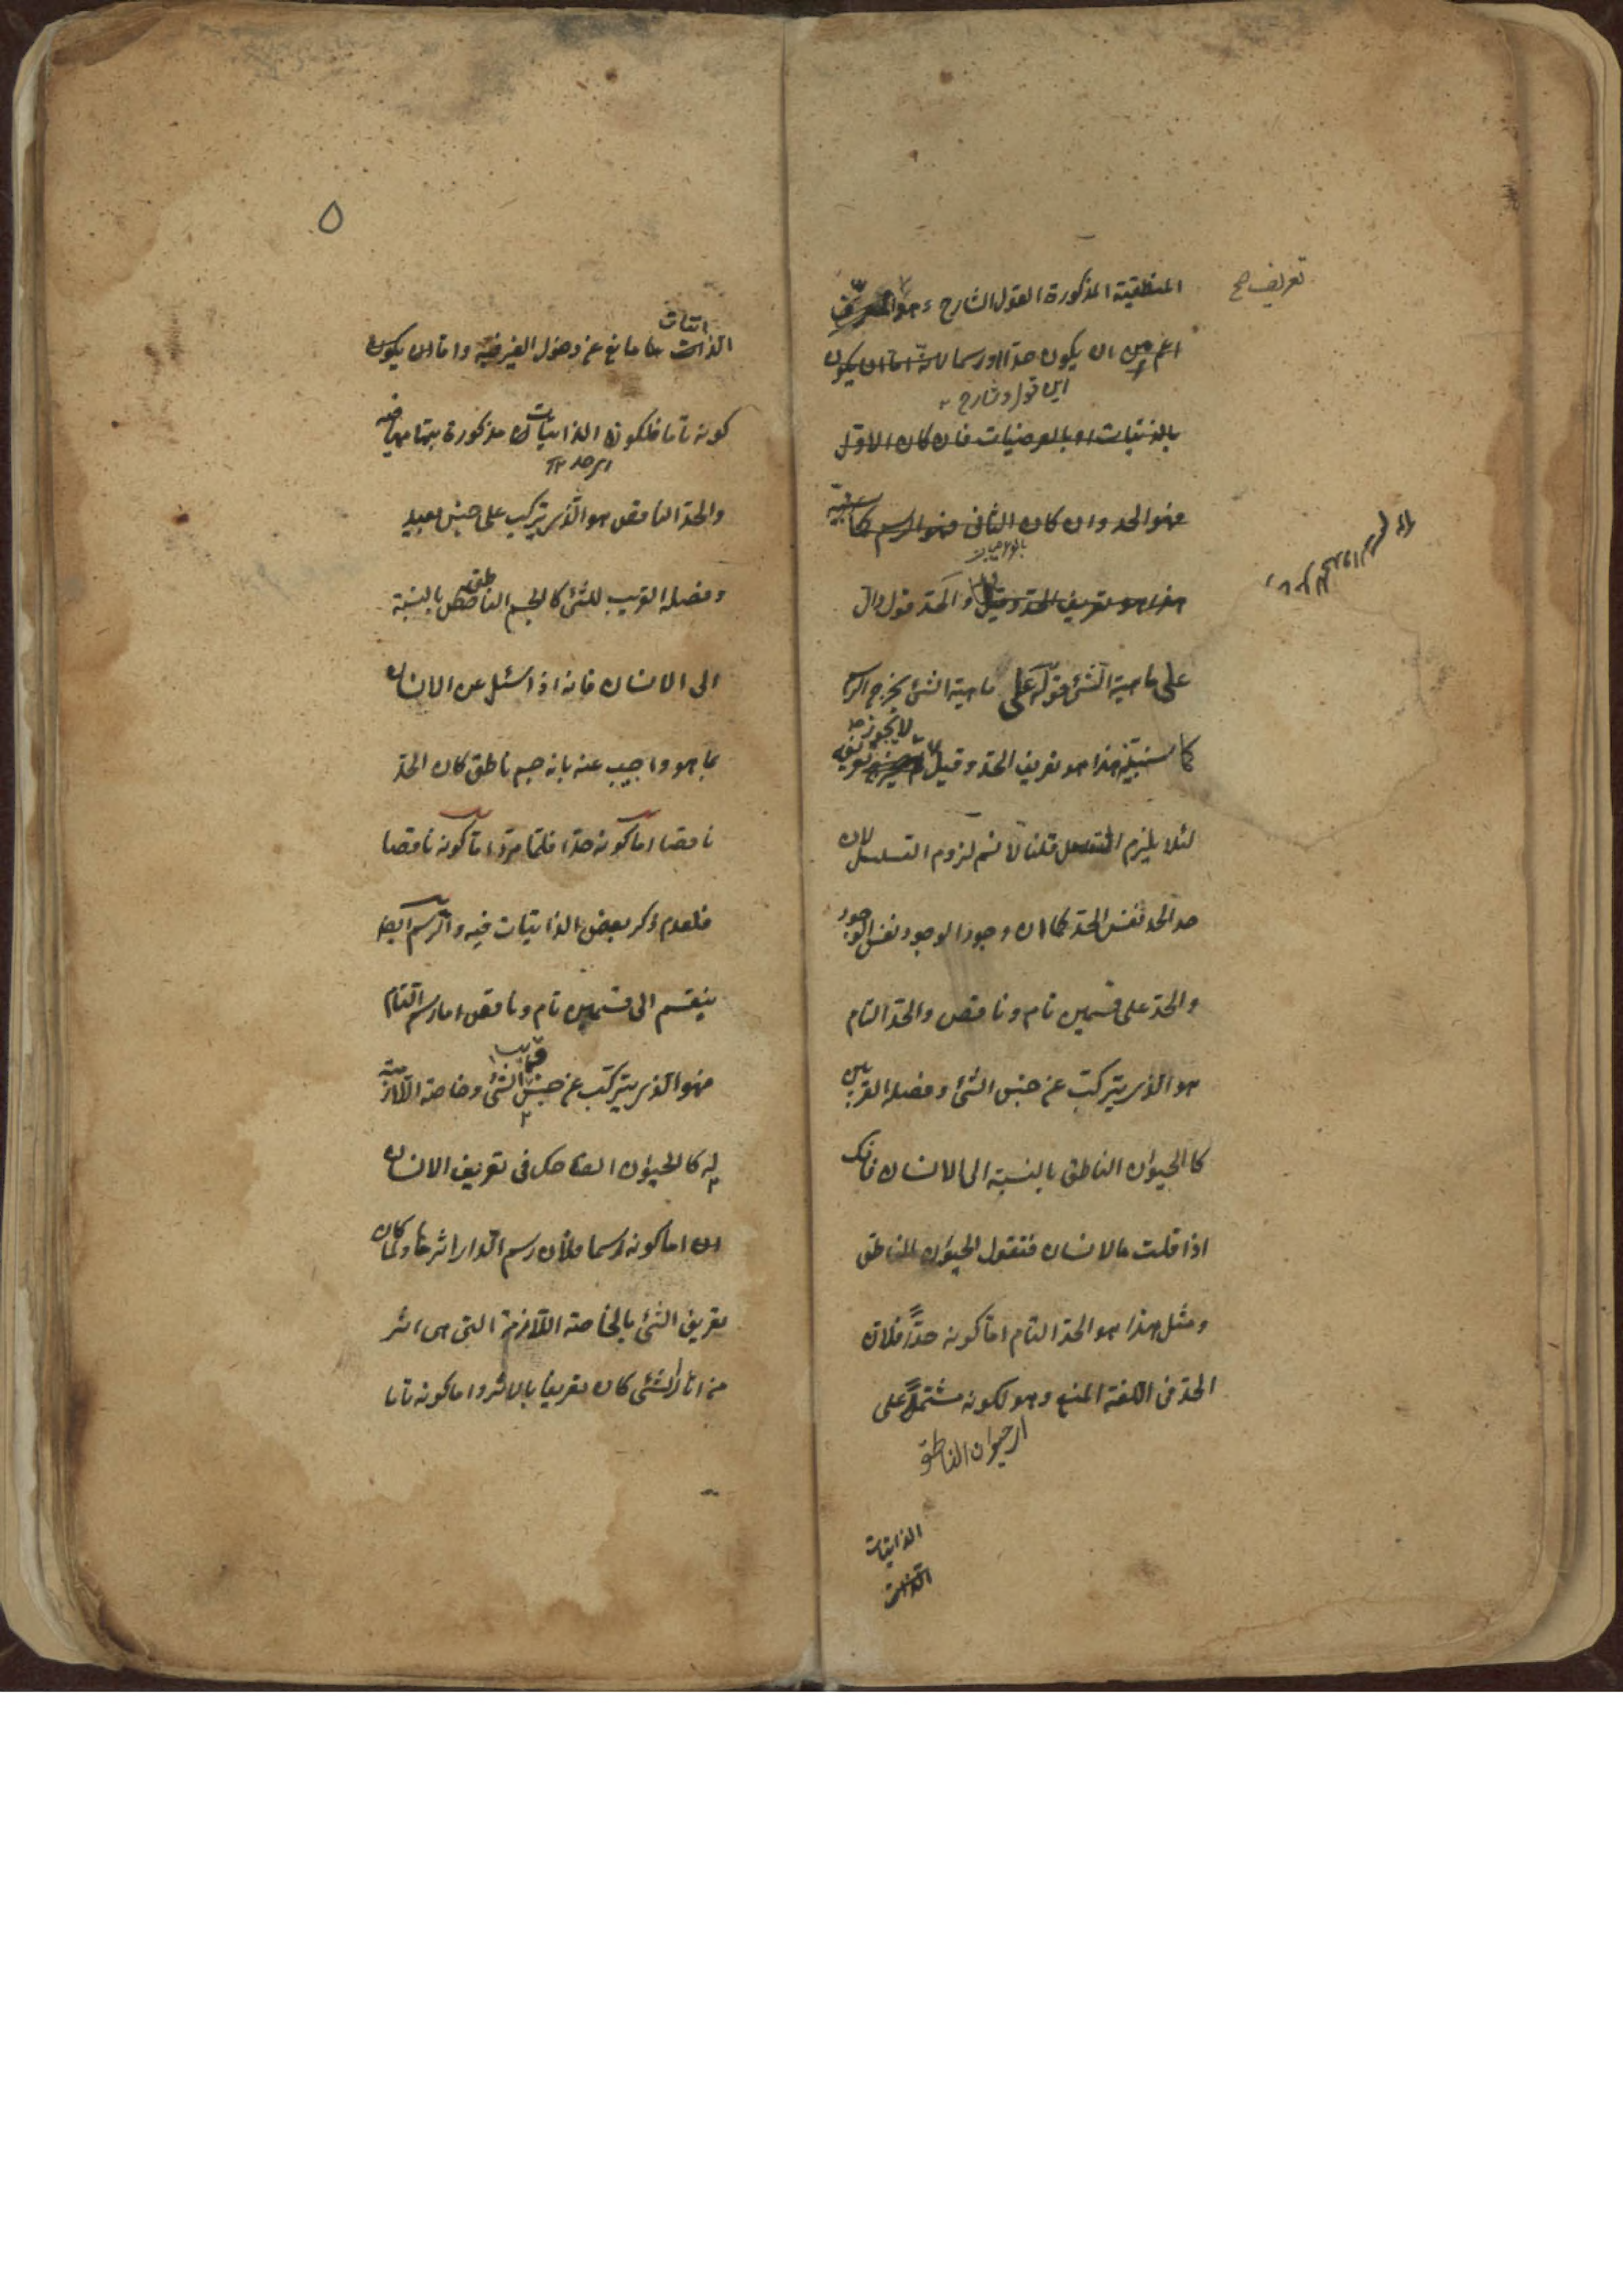 تعريف صح
المنطقية المذكورة القول الشارح وهو المعرف
اعم من ان يكون حدا او رسما لانه اما ان يكون
اين قول شارح
بالذاتيات او بالعرضيات فان كان الاول
فهو الحد وان كان الثاني فهو الرسم كما
هذا هو تعريف الحد وقيل والحد قول دال
على ماهية الشئ قوله على ماهية الشئ يخرج الرسم
كما سنبينه هذا هو تعريف الحد وقيل لا يجوز تعريفه
لئلا يلزم التسلسل قلنا لا نسلم لزوم التسلسل لان
حد الحد نفس الحد كما ان وجود الوجود نفس الوجود
والحد على قسمين تام وناقص والحد التام
هو الذي يتركب عن جنس الشئ وفصله القريبين
كالحيوان الناطق بالنسبة الى الانسان فانك
اذا قلت ما الانسان فتقول الحيوان الناطق
ومثل هذا هو الحد التام اما كونه حدا فلان
الحد في اللغة المنع وهو لكونه مشتملا على
اى حيوان الناطق
الذاتيات
الذات
٥
الذاتيات مانع عن دخول الغير فيه واما ان يكون
كونه تاما فلكون الذاتيات مذكورة بتمامها فيه
والحد الناقص هو الذي يتركب على جنس بعيد
وفصله القريب للشئ كالجسم الناطق بالنسبة
الى الانسان فانه اذا سئل عن الانسان
بما هو واجيب عنه بانه جسم ناطق كان الحد
ناقصا اما كونه حدا فلما مر واما كونه ناقصا
فلعدم ذكر بعض الذاتيات فيه والرسم ايضا
ينقسم الى قسمين تام وناقص اما رسم التام
قريب
فهو الذي يتركب عن جنس الشئ وخاصته اللازمة
له كالحيوان الضاحك في تعريف الانسان
اما كونه رسما فلان رسم الدار اثرها ولما كان
تعريف الشئ بالخاصة اللازمة التي هي اثر
من اثار الشئ كان تعريفا بالاثر واما كونه تاما